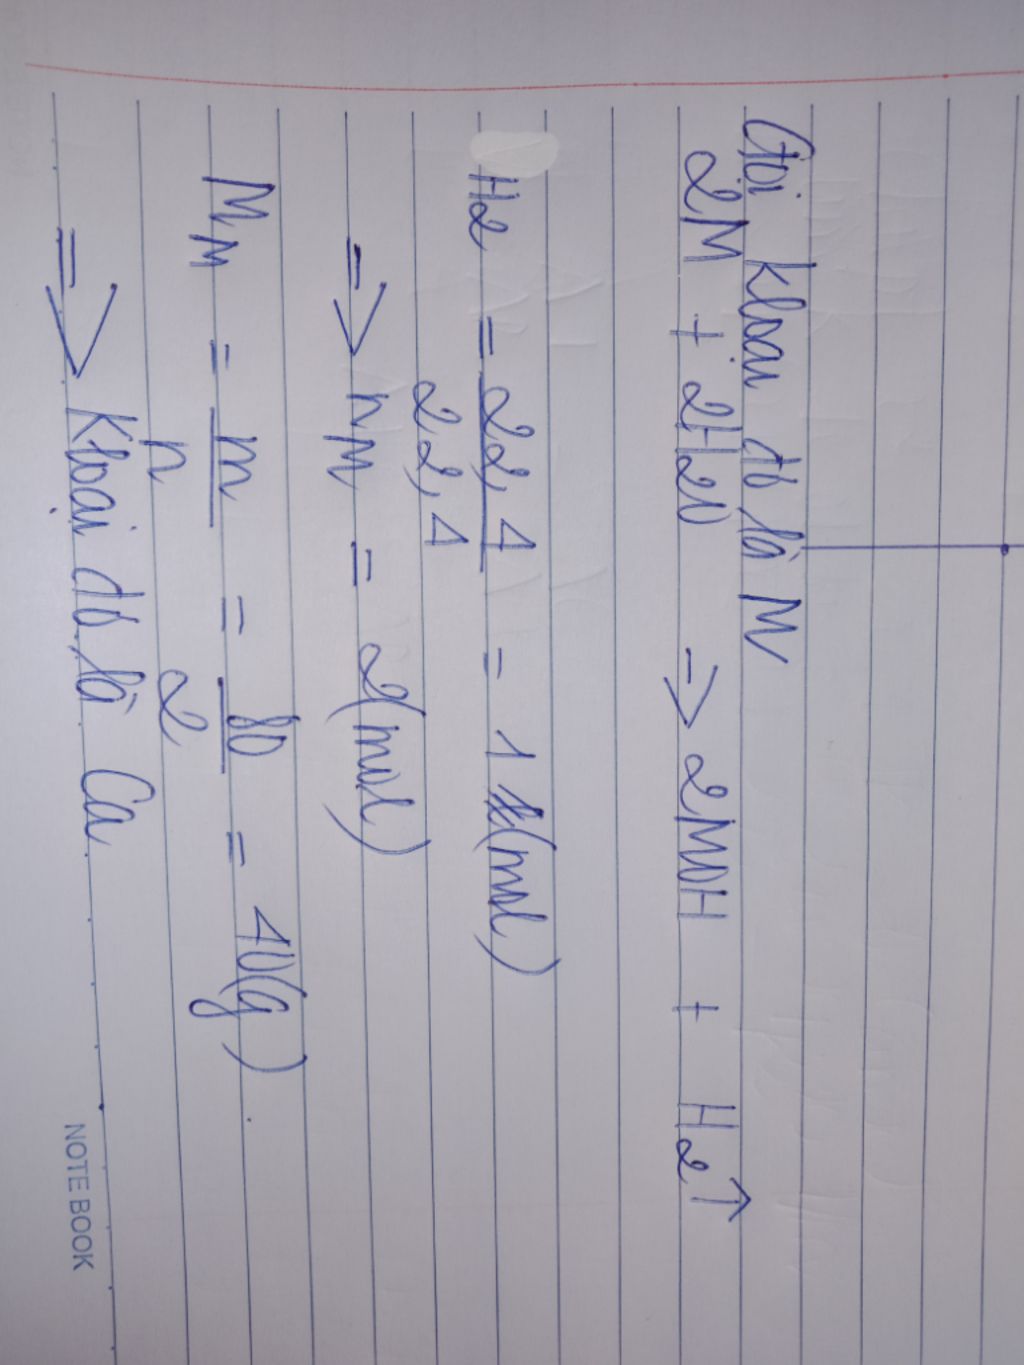 Gọi kloại đó là M
2M + 2H2O => 2MOH + H2↑
H2 = 22,4
22,4
= 1 (mol)
=> nM = 2(mol)
MM = m
n
= 80
2
= 40(g)
=> Kloại đó là Ca
NOTE BOOK